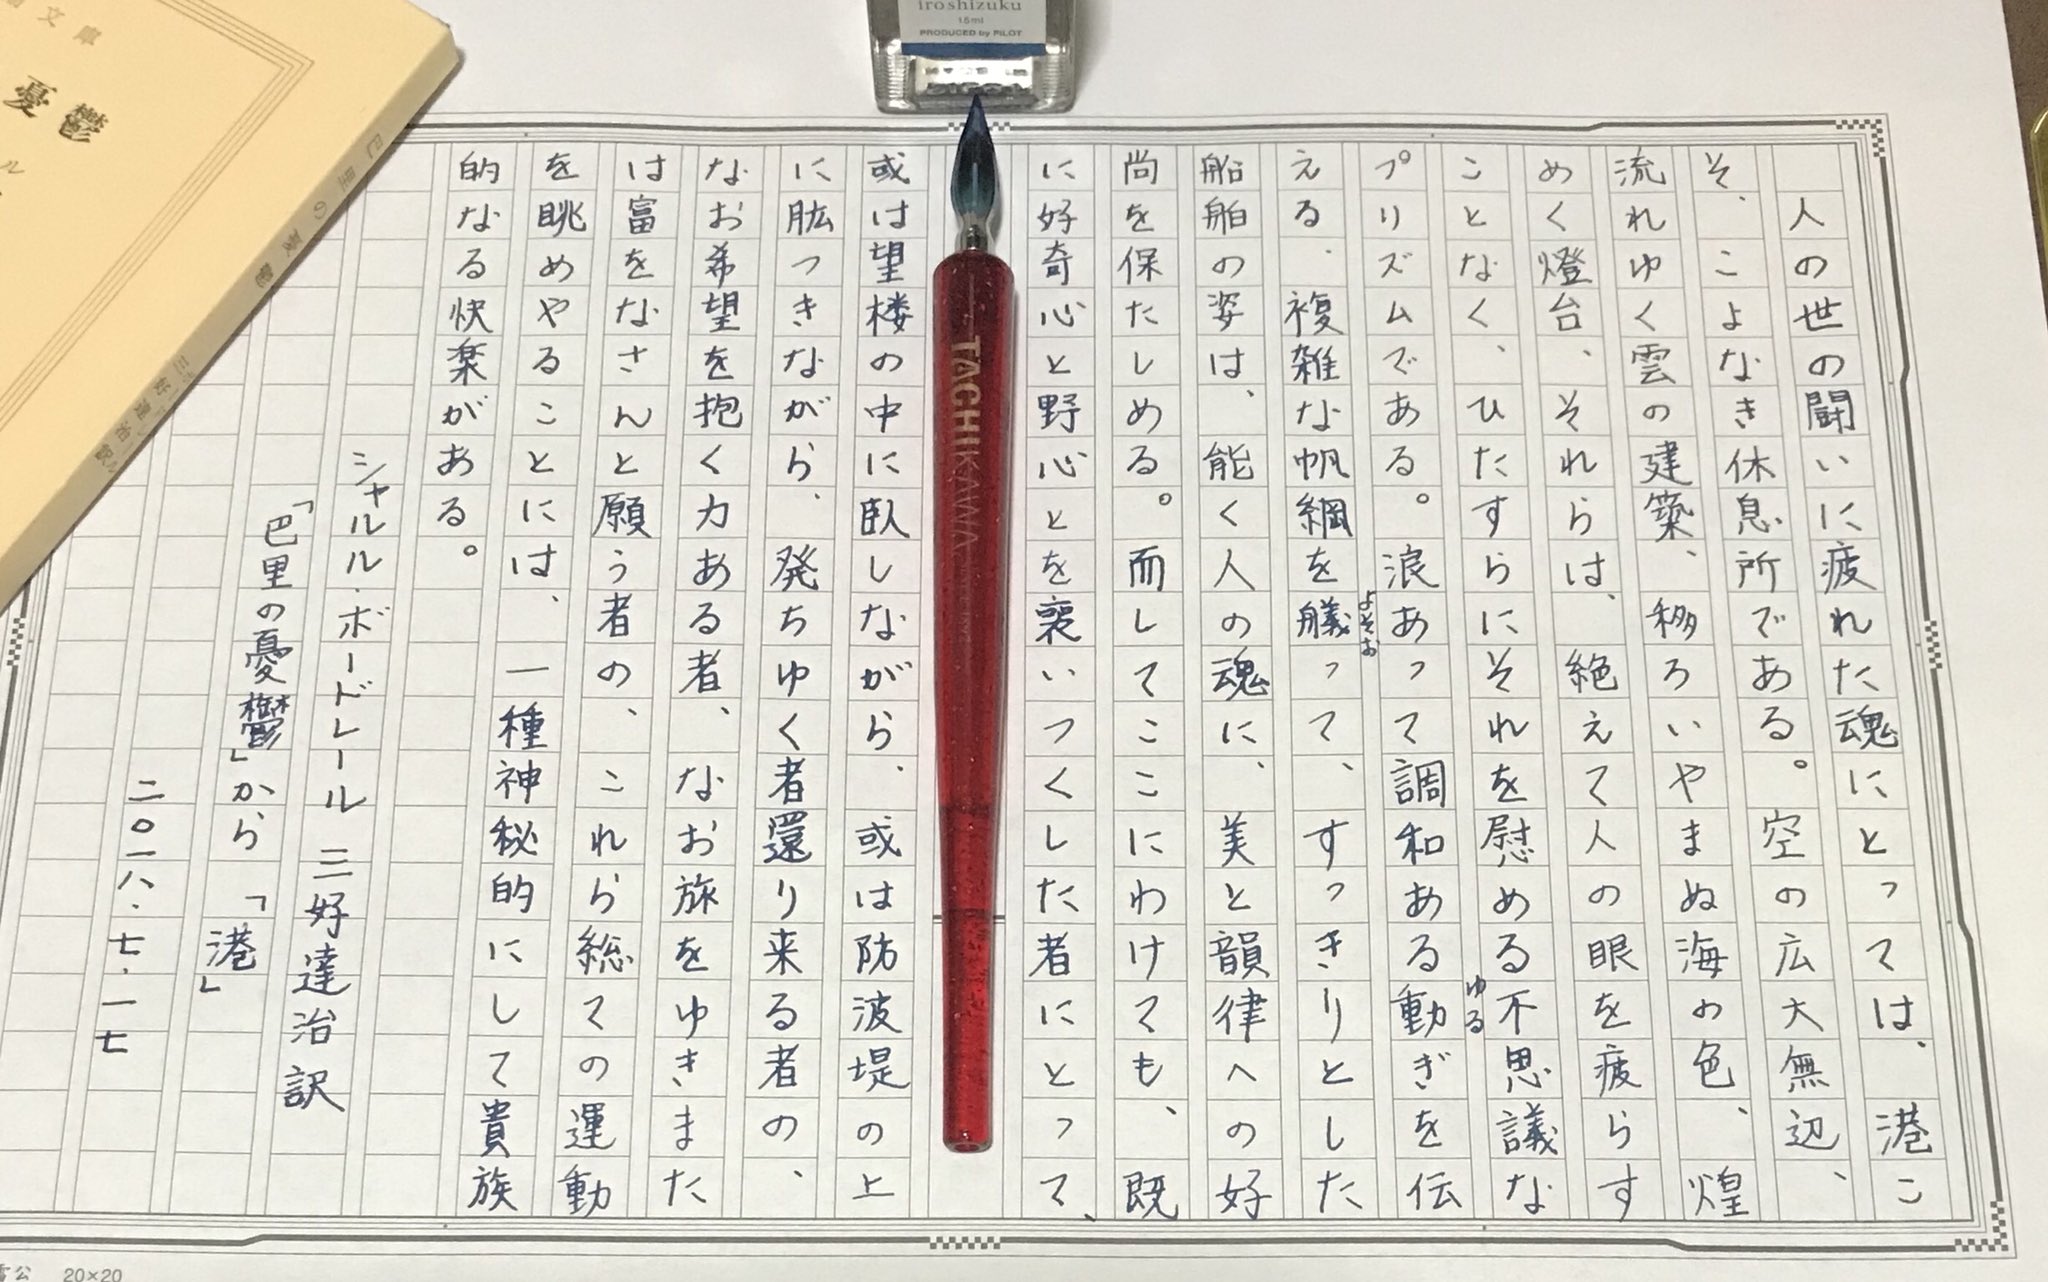 iroshizuku
15ml
PRODUCED by PILOT
文庫
憂鬱
ル
巴里の憂鬱
三好達治訳
TACHIKAWA
人の世の闘いに疲れた魂にとっては、港こ
そ、こよなき休息所である。空の広大無辺、
流れゆく雲の建築、移ろいやまぬ海の色、煌
めく燈台、それらは、絶えて人の眼を疲らす
ことなく、ひたすらにそれを慰める不思議な
プリズムである。浪あって調和ある動ぎを伝
ゆる
える、複雑な帆綱を艤って、すっきりとした
よそお
船舶の姿は、能く人の魂に、美と韻律への好
尚を保たしめる。而してここにわけても、既
に好奇心と野心とを喪いつくした者にとって、
或は望楼の中に臥しながら、或は防波堤の上
に肱つきながら、発ちゆく者還り来る者の、
なお希望を抱く力ある者、なお旅をゆきまた
は富をなさんと願う者の、これら総ての運動
を眺めやることには、一種神秘的にして貴族
的なる快楽がある。
シャルル・ボードレール 三好達治訳
「巴里の憂鬱」から 「港」
二〇一八・七・一七
20×20